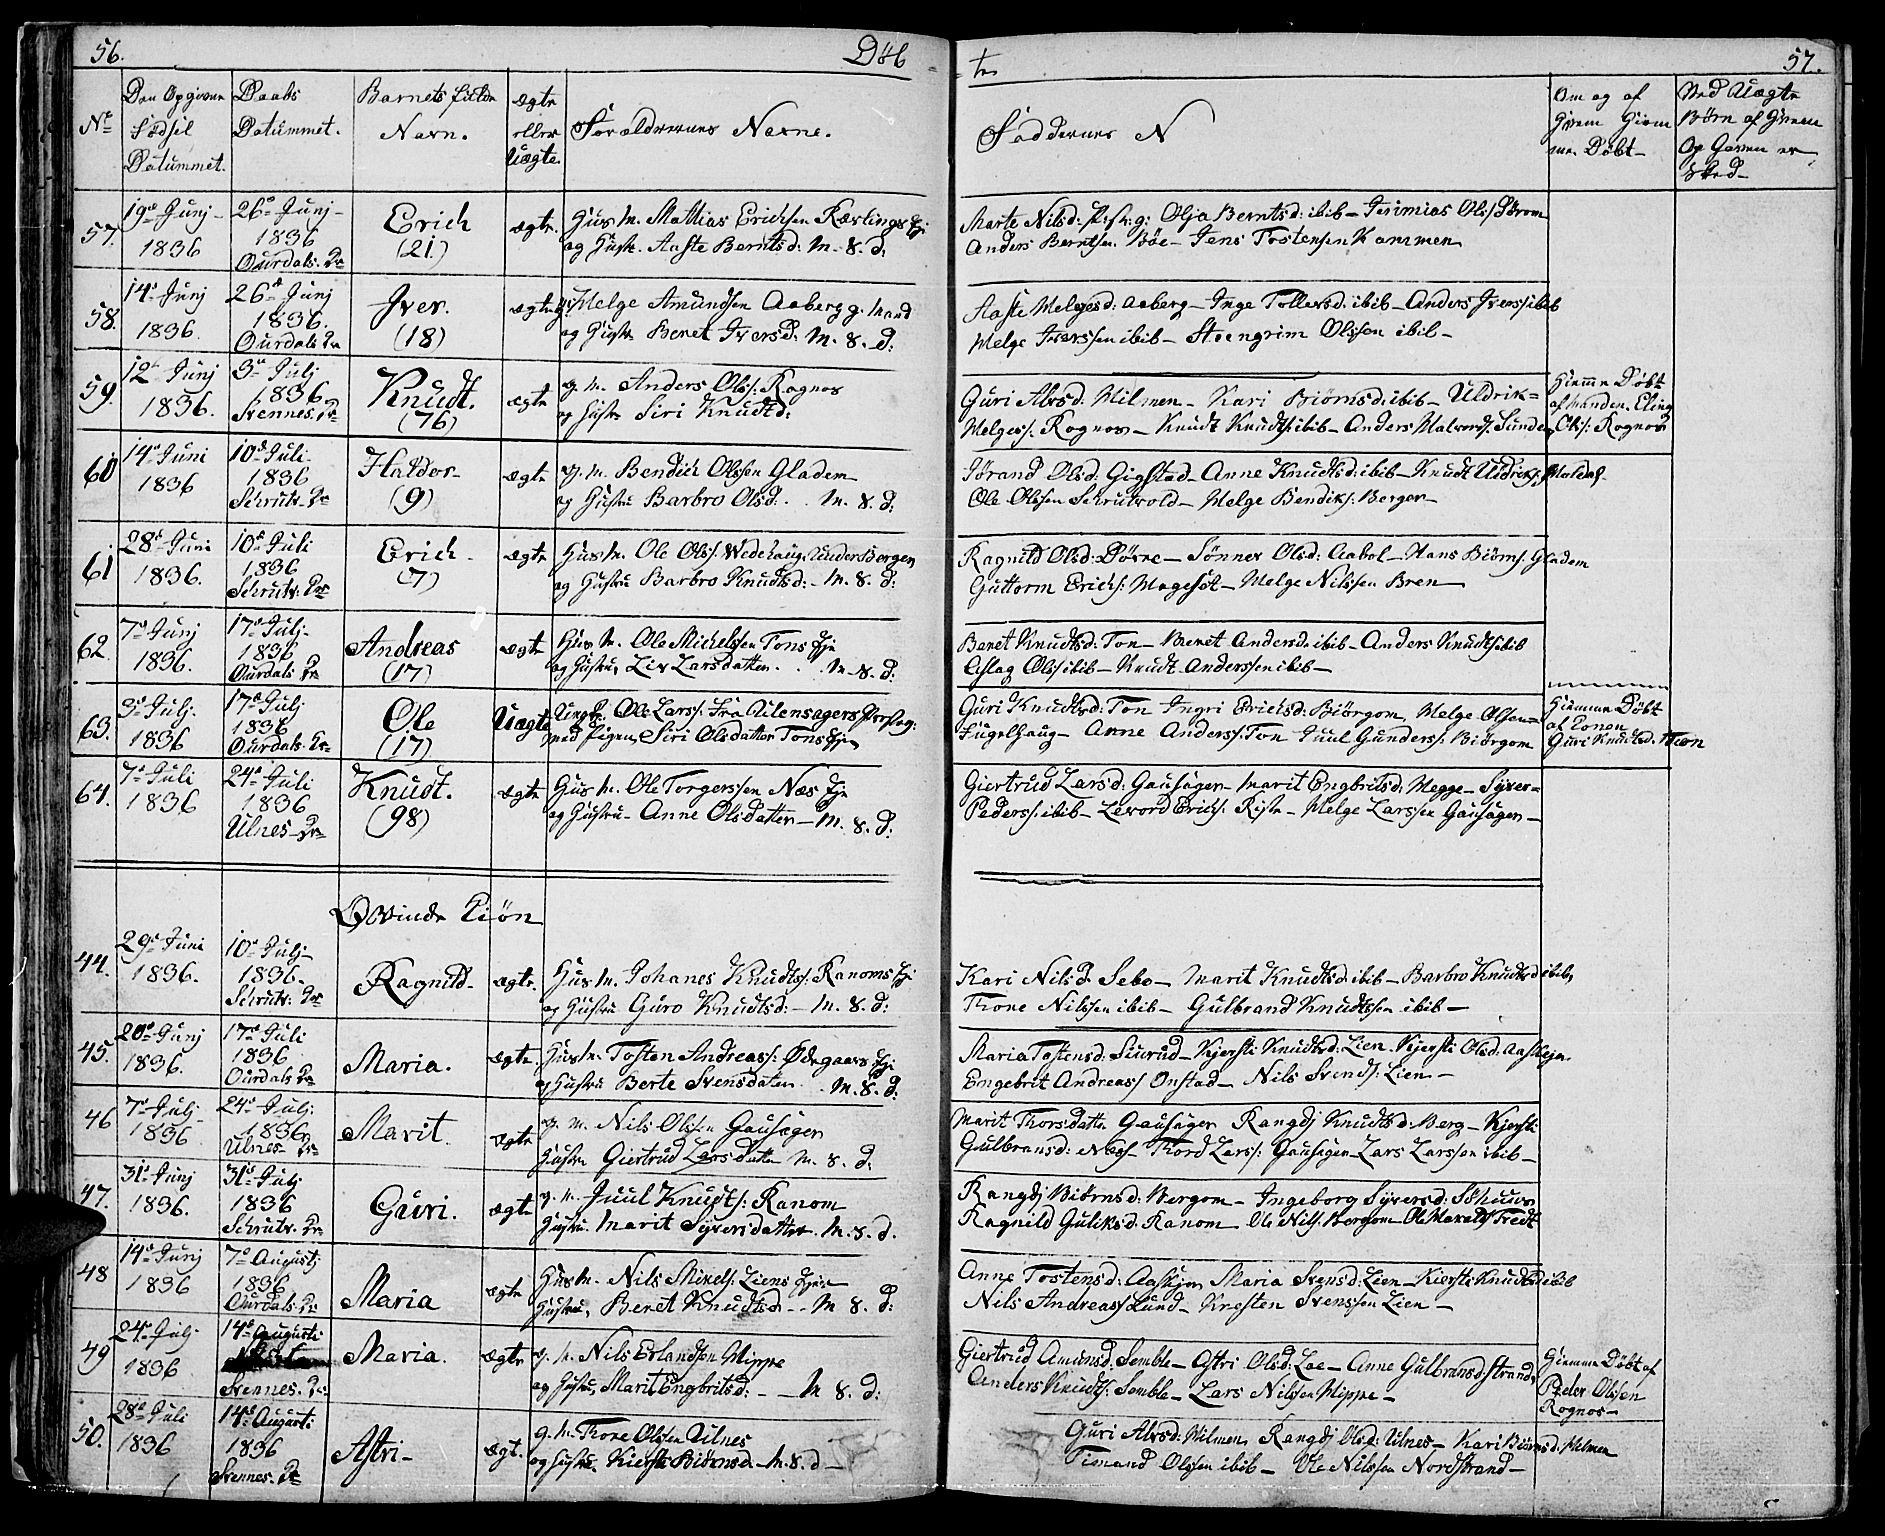 56. Døb
= te 57.
No
Den Opgivne
Fødsil
Datummet.
Daabs
Datummet.
Barnets fulde
Navn.
ægte
eller
Uægte.
Forældrernes Navne.
Faddernes N
Om og af
Hvem Hiem
me Døbt
Ved Uægte
Børn af Hvem
Op Gaven er
Sked
57. 19de Junj 1836
26de Junj 1836 Ourdals. Ke
Erich (21)
ægte
Huus M. Mattias Erichsen Kærlings Eje
og Hustr. Aaste Berntsd: M. 8. d:
Marte Nilsd: Olja Berntsd: ibib Jerimias Ols
Anders Berntsen Bøe Jens Tostensen Kammen
58. 14de Junj 1836
26de Junj 1836. Ourdals Ke
Iver. (18)
ægte
Helge Amundsen Aaberg g. Mand
og Hustr Beret Iversd: M. 8. d:
Aaste Helgesd: Aaberg Inge Tollevsd: ibib Anders Iverss ibib
Helge Iverssen ibib Steengrim Olssen ibib
59. 12te Junj 1836.
3de Julj 1836 Svennes. Ke
Knudt. (76)
ægte
g. M. Anders Ols: Rognos
og Hustr Siri Knudtd:
Guri Alvsd: Hilmen Kari Biørnsd: ibib Uldrik=
Helges: Rognos Knudt Knudts: ibib Anders Halvords. Sunde
Hiemme Døbt
af Manden. Eling
Ols: Rognos
60 14de Juni 1836
10de Juli 1836 Schrutv. Ke
Haldor (9)
ægte
g. M. Bendich Olssen Gladem
og Hustru Barbro Olsd: M. 8. d:
Jørand Olsd: Gigstad Anne Knudtsd: ibib Knudt Uldriks: Moldal
Ole Olssen Schrutvold Helge Bendiks: Berger
61 28de Juni 1836.
10de Juli 1836 Schrutv: Ke
Erich (7)
ægte
Huus M. Ole Ols: Wedehaug Under Bergen
og Hustru Barbro Knudtsd: M. 8. d:
Ragnild Olsd: Døvre Sønner Olsd: Aabol Hans Biørns: Gladem
Guttorm Erichs: Magesøt Helge Nilssen Bren
62 7de Junj 1836.
17de Julj 1836 Ourdals Ke
Andreas (17)
ægte
Huus M. Ole Michelsen Tons Eje
og Hustru Liv Larsdatter M. 8. d:
Beret Knudtsd: Ton Beret Andersd: ibib Anders Knudts ibib
Aslag Ols ibib Knudt Anderssen ibib
63. 3de Julj. 1836
17de Julj 1836 Ourdals. Ke
Ole (17)
Uægte
Ungk. Ole Lars: Fra Ullensagers Præsteg:
med Pigen Siri Olsdatter Tons Eje
Guri Knudtsd: Ton Ingri Erichsd: Biørgom, Helge Olsen
Fugelhaug Anne Anders: Ton Juul Gunders: Biørgom
Hiemme Døbt
af Konen
Guri Knudtsd. Tion
64. 7de Juli 1836
24de Juli 1836 Ulnes Ke
Knudt. (98)
ægte
Huus M. Ole Torgerssen Næs Eje
og Hustru Anne Olsdatter M. 8. d:
Giertrud Larsd: Gausager Marit Engbritsd: Hegge Syver=
Peders: ibib Levord Erichs: Riste Helge Larssen Gausager
Qvinde Kiøn
44. 29de Juni 1836.
10de Julj 1836. Schrutv: Ke
Ragnild
ægte
Huus M. Johanes Knudts: Ranoms Eje
og Hustru Guro Knudtsd: M. 8. d:
Kari Nilsd Sebo Marit Knudtsd: ibib Barbro Knudtsd ibib,
Trone Nilssen ibib Gulbrand Knudtssen ibib
45. 20de Junj 1836.
17de Juli 1836 Ourdals Ke
Maria.
ægte
Huus M. Tosten Andreas: Ødegaars Eje
og Hustru Berte Svensdatter M. 8. d.
Maria Tostensd: Siurud Kjersti Knudtsd: Lien Kjersti Olsd: Aaskjen
Engebrit Andreas Onstad Nils Svends: Lien
46 7de Julj 1836
24de Julj: 1836 Ulnes Ke
Marit.
ægte
g. M. Nils Olssen Gausager
Hustru Giertrud Larsdatter M. 8. d.
Marit Thorsdatter Gausager Rangdj Knudtsd: Berg Kjersti
Gulbransd: Næs Thord Lars: Gausagen Lars Larssen ibib
47. 31de Junj 1836.
31de Julj 1836 Schrutv. Ke
Guri.
ægte
g. M. Juul Knudts: Ranom
Hustru Marit Syversdatter. M. 8. d.
Rangdj Biørnsd: Bergom Ingeborg Syversd:
Ragnild Guliksd: Ranom Ole Nils Bergom Ole Tredt
48 14de Junj 1836
7de Augustj 1836 Ourdals. Ke
Maria
ægte
Huus M. Nils Mikels: Liens Eje
Hustru Beret Knudtsd M. 8. d:
Anne Tostensd: Aaskjen Maria Svensd: Lien Kiersti Knudtsd ibib
Nils Andreas Lund Kresten Svenssen Lien
49 24de Julj 1836
14de Augusti Svennes. Ke
Maria.
ægte
g. M. Nils Erlandsen Hippe
og Hustru, Marit Engbritsd: M 8. d:
Giertrud Amunsd: Semble Astri Olsd: Loe Anne Gulbransd: Strand
Anders Knudts: Semble Lars Nilssen Hippe
Hiemme Døbt af
Peder Olssen
Rognos
50. 28de Juli 1836
14de Augusti 1836 Svennes. Ke
Astri
ægt.
g. M. Thore Olsen Ulnes
og Hustru. Kiersti Biørnsd M. 8. d
Guri Alvsd: Hilmen, Rangdj Olsd: Ulnes Kari Biørnsd: Hilmen
Timand Olssen ibib Ole Nilssen Nordstrand